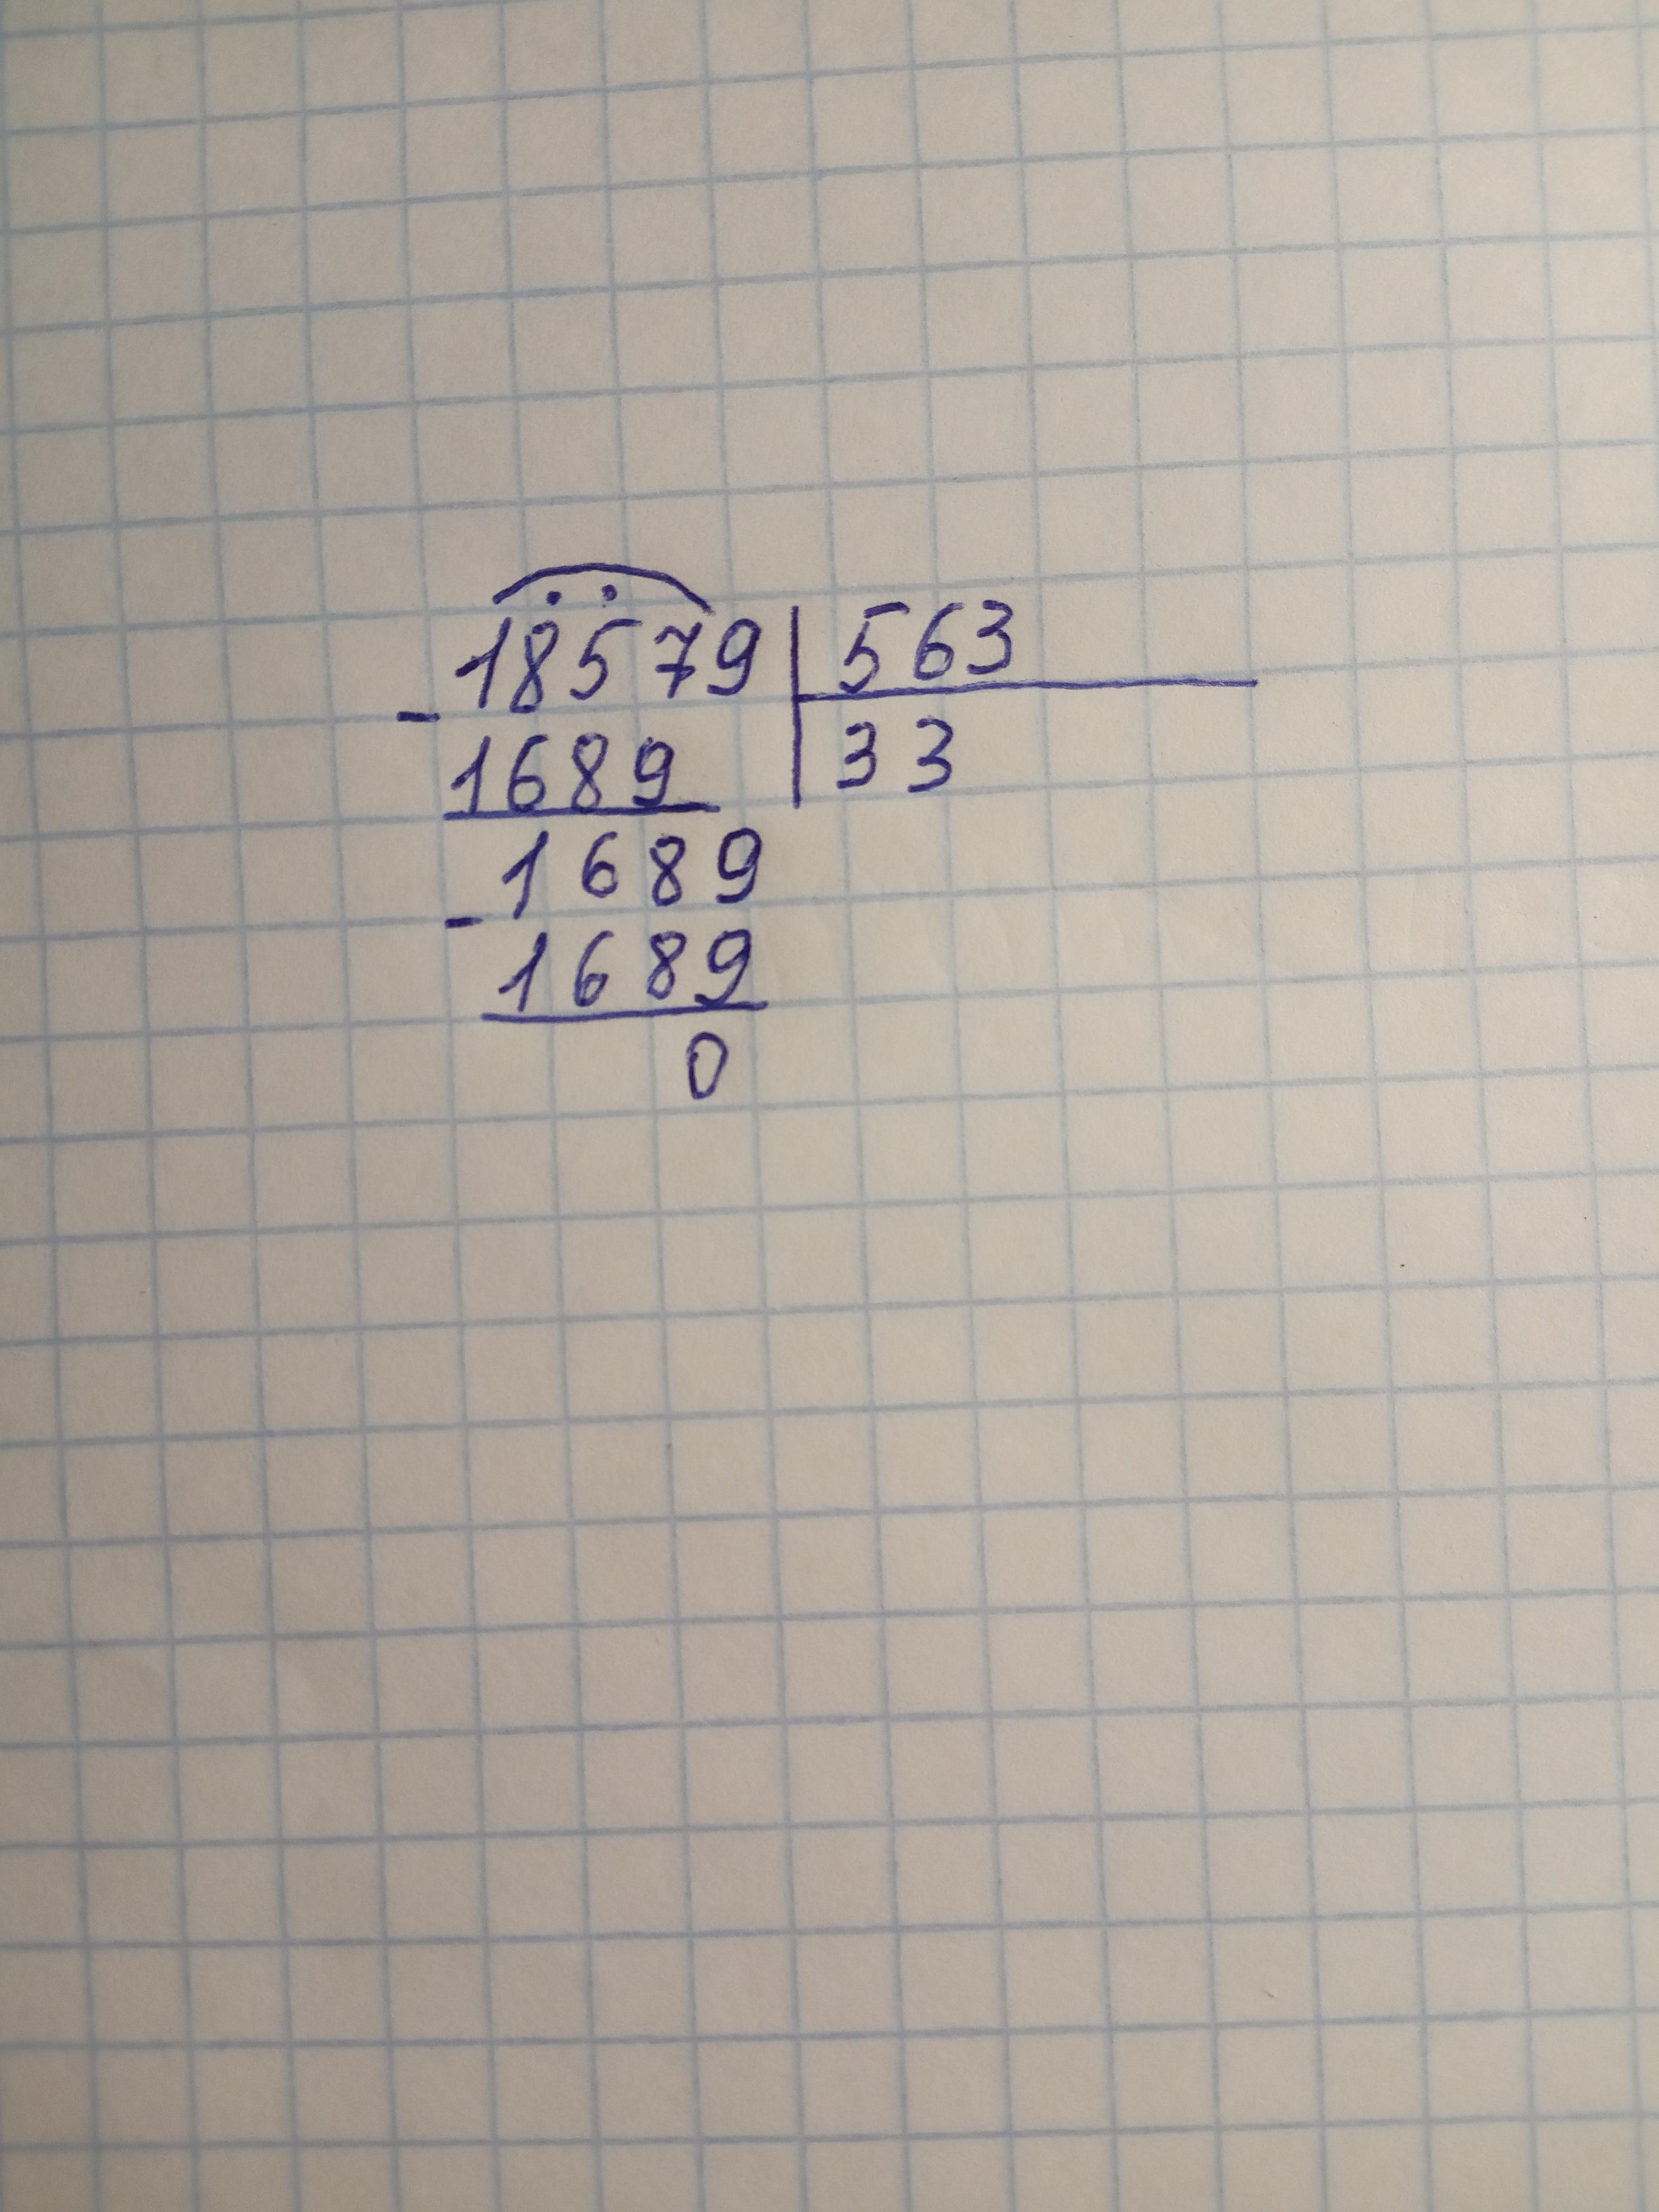 18579 | 563
- 1689 | 33
1689
- 1689
0